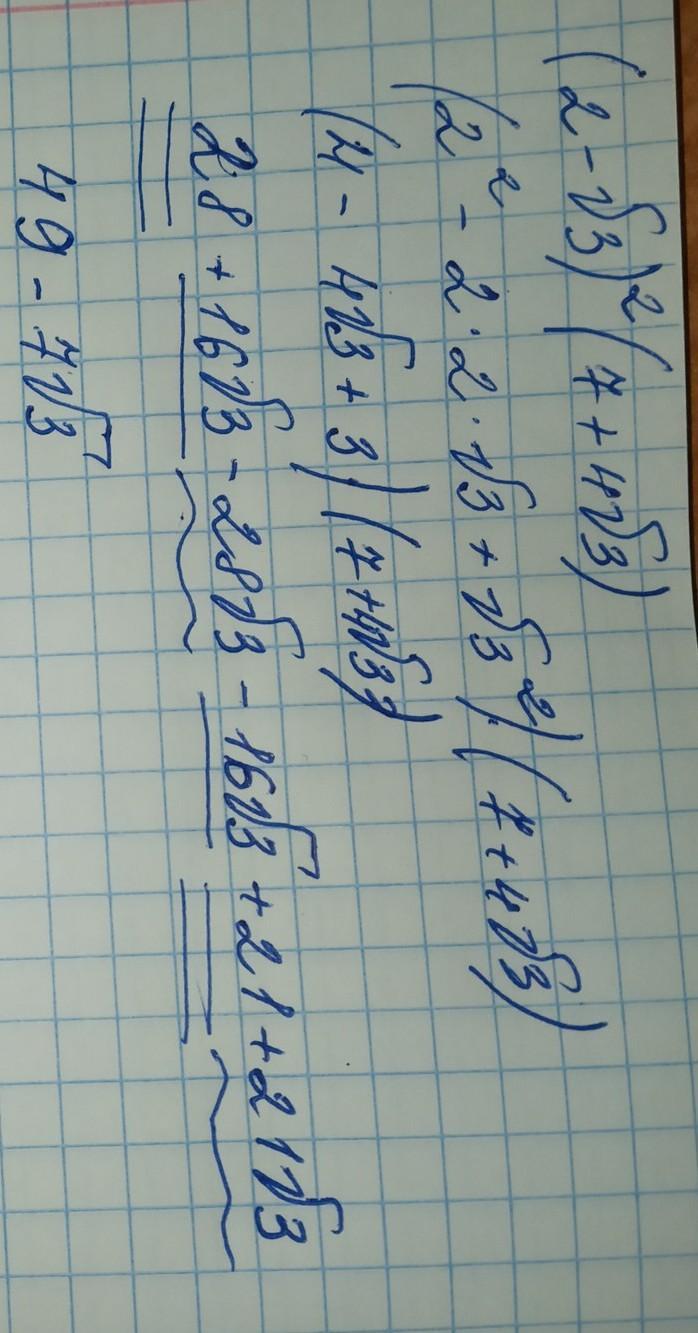 (2-√3)²(7+4√3)
(2²-2·2·√3+√3²)(7+4√3)
(4-4√3+3)(7+4√3)
28+16√3-28√3-16√3+21+21√3
49-7√3